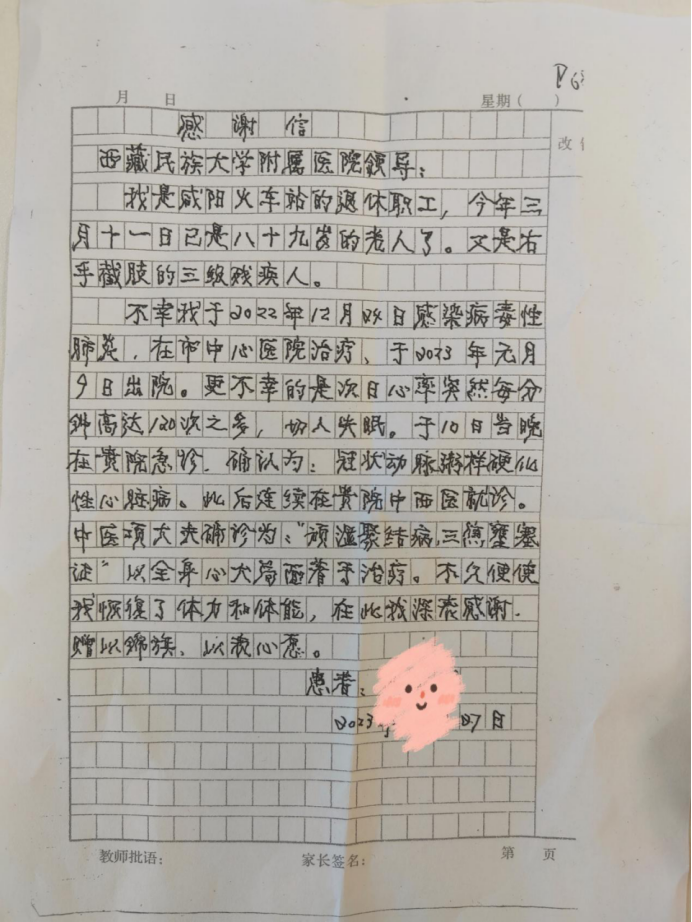 月 日 星期( )
改
感谢信
西藏民族大学附属医院领导:
我是咸阳火车站的退休职工,今年三
月十一日已是八十九岁的老人了。又是右
手截肢的三级残疾人。
不幸我于2022年12月24日感染病毒性
肺炎,在市中心医院治疗、于2023年元月
9日出院。更不幸的是次日心率突然每分
钟高达120次之多,切人失眠。于10日当晚
在贵院急诊.确认为:冠状动脉粥样硬化
性心脏病。此后连续在贵院中西医就诊。
中医项大夫确诊为:"顽滥聚结病,三焦壅塞
证"以全身心大局医著手治疗。不久便使
我恢復了体力和体能,在此我深表感谢.
赠以锦旗、以表心愿。
患者:
2023 27日
教师批语: 家长签名: 第 页